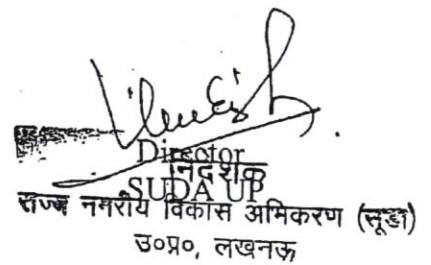 Director
निदेशक
SUDA UP
राज्य नगरीय विकास अभिकरण (सूडा)
उ०प्र०, लखनऊ